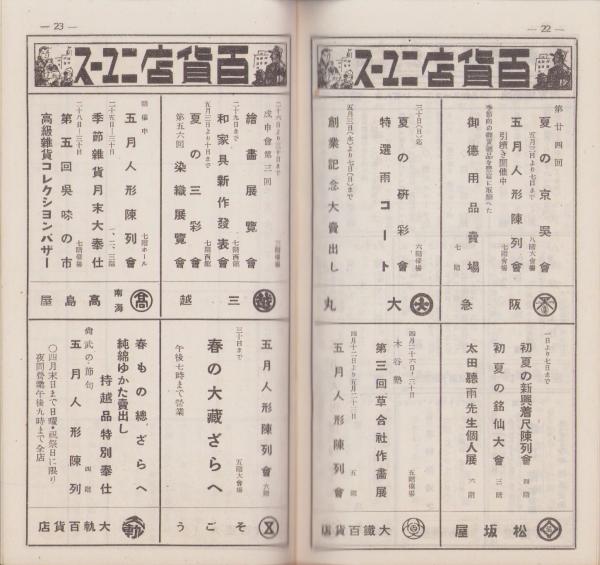 — 22 —
百貨店ニュース
第廿四回
夏の京吳會
五月三日より七日まで
八階大會場
五月人形陳列會
引續き開催中
七階會場
季節向の御實用品を豐富に取揃へた
御德用品賣場
七階
阪急
三十日(日)迄
夏の硏彩會
六階催場
特選雨コート
五月三日(水)より七日(日)まで
創業記念大賣出し
大丸
一日より七日まで
初夏の新興着尺陳列會
四階
初夏の銘仙大會
三階
太田聽雨先生個人展
六階
松坂屋
四月二十六日—三十日
木谷塾
五階催場
第三回草合社作畫展
四月十二日より五月二十二日
五月人形陳列會
五階
大鐵百貨店
— 23 —
百貨店ニュース
二十六日より三十日まで
戊申會第三回
繪畫展覽會
二十九日まで
七階西館
和家具新作發表會
五月三日より十日まで
七階西館
夏の三彩會
第五六回染織展覽會
三越
開催中
五月人形陳列會
七階ホール
二十五日—三十日
季節雜貨月末大奉仕
一、二、三階
二十八日—三十日
第五回吳咏の市
七階催場
高級雜貨コレクションバザー
南海
高島屋
五月人形陳列會
六階
三十日まで
五階大會場
春の大藏ざらへ
午後七時まで營業
そごう
春もの總ざらへ
純綿ゆかた賣出し
持越品特別奉仕
四階
尙武の節句
五月人形陳列
〇四月末日まで日曜・祝祭日に限り
夜間營業午後九時まで全店
大軌百貨店